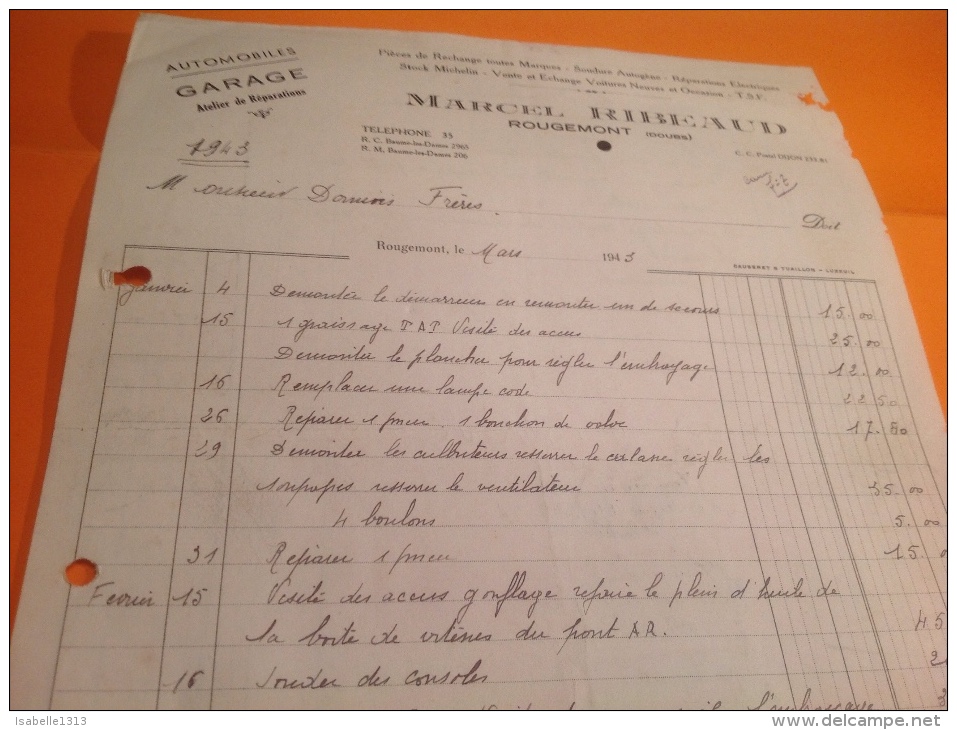 AUTOMOBILES
GARAGE
Atelier de Réparations
Pièces de Rechange toutes Marques - Soudure Autogène - Réparations Electriques
Stock Michelin - Vente et Echange Voitures Neuves et Occasion - T.S.F.
MARCEL RIBEAUD
ROUGEMONT (DOUBS)
TELEPHONE 35
R. C. Baume-les-Dames 2965
R. M. Baume-les-Dames 206
C. C. Postal DIJON 233.81
1943
Monsieur Frères. Doit
Rougemont, le Mars 1943
GAUSSRET & THAILLON - LUXEUIL
Janvier 4 Demonter le démarreur en remonter un de secours 15.00
15 1 graissage T A T Visite des accus 25.00
Demonter le plancher pour régler l'embrayage 12.00
16 Remplacer une lampe code 22 50
26 Réparer 1 pneu 1 bouchon de valve 17.80
29 Demonter les culbuteurs resserrer le culasse régler les
soupapes resserrer le ventilateur 35.00
4 boulons 5.00
31 Réparer 1 pneu 15.
Fevrier 15 Visite des accus gonflage refaire le plein d'huile de
la boite de vitesses du pont A.R. 45
2
16 Souder des consoles
l'embrayage 3
Isabelle1313
www.delcampe.net